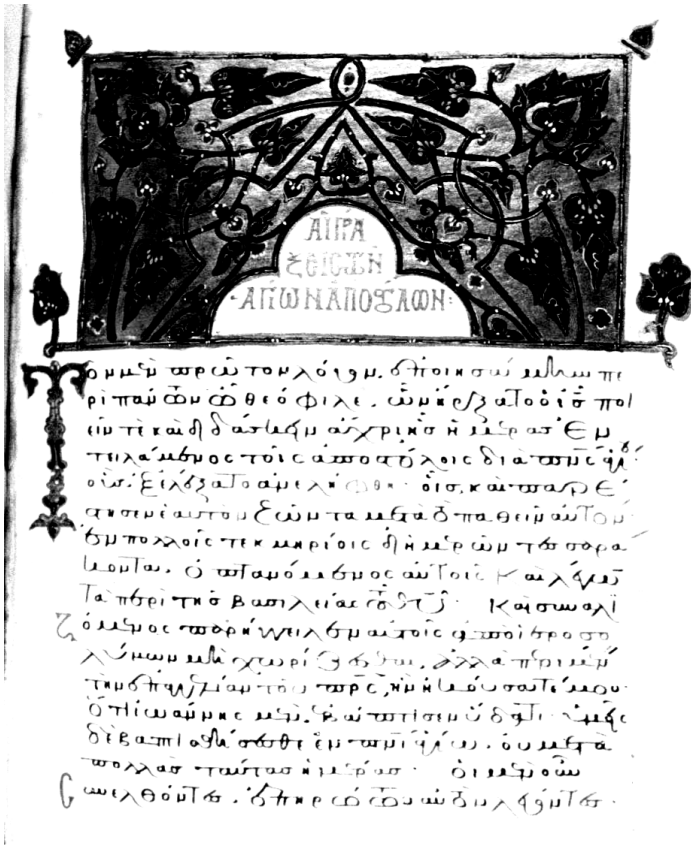 ΑΙ ΠΡΑ
ΞΕΙΣ ΤΩΝ
ΑΓΙΩΝ ΑΠΟΣΤΟΛΩΝ
Τὸν μὲν πρῶτον λόγον ἐποιησάμην πε
ρὶ πάντων ὦ θεόφιλε, ὧν ἤρξατο ὁ ις ποι
εῖν τὲ καὶ διδάσκειν ἄχρι ἧς ἡμέρας ἐν
τειλάμενος τοῖς ἀποστόλοις διὰ πνς ἁγίου
οὓς ἐξελέξατο ἀνελήφθη· οἷς καὶ παρέ
στησεν ἑαυτὸν ζῶντα μετὰ τὸ παθεῖν αὐτὸν
ἐν πολλοῖς τεκμηρίοις δι' ἡμερῶν τεσσαρά
κοντα. ὀπτανόμενος αὐτοῖς καὶ λέγων
τὰ περὶ τῆς βασιλείας τοῦ θυ· Καὶ συναλι
ζόμενος παρήγγειλεν αὐτοῖς ἀπὸ ἱεροσο
λύμων μὴ χωρίζεσθαι, ἀλλὰ περιμένειν
τὴν ἐπαγγελίαν τοῦ πρς, ἣν ἠκούσατέ μου·
ὅτι ἰωάννης μὲν ἐβάπτισεν ὕδατι· ὑμεῖς
δὲ βαπτισθήσεσθε ἐν πνι ἁγίω. οὐ μετὰ
πολλὰς ταύτας ἡμέρας· οἱ μὲν οὖν
συνελθόντες, ἐπηρώτων αὐτὸν λέγοντες·